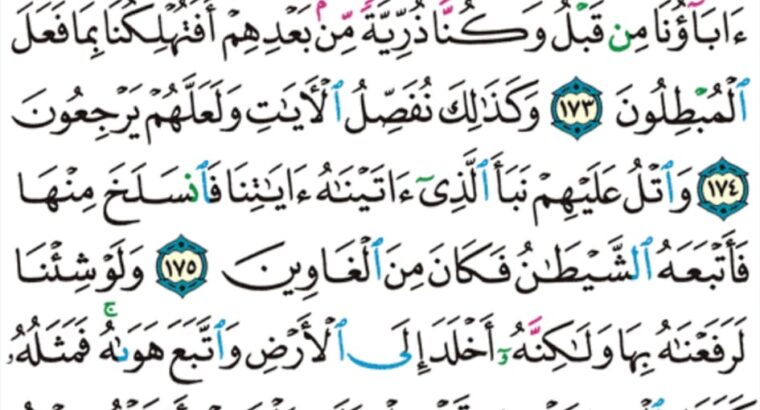 ءَابَآؤُنَا مِن قَبْلُ وَكُنَّا ذُرِّيَّةً مِّنۢ بَعْدِهِمْ أَفَتُهْلِكُنَا بِمَا فَعَلَ
ٱلْمُبْطِلُونَ ١٧٣ وَكَذَٰلِكَ نُفَصِّلُ ٱلْأَيَٰتِ وَلَعَلَّهُمْ يَرْجِعُونَ
١٧٤ وَٱتْلُ عَلَيْهِمْ نَبَأَ ٱلَّذِىٓ ءَاتَيْنَٰهُ ءَايَٰتِنَا فَٱنسَلَخَ مِنْهَا
فَأَتْبَعَهُ ٱلشَّيْطَٰنُ فَكَانَ مِنَ ٱلْغَاوِينَ ١٧٥ وَلَوْ شِئْنَا
لَرَفَعْنَٰهُ بِهَا وَلَٰكِنَّهُۥٓ أَخْلَدَ إِلَى ٱلْأَرْضِ وَٱتَّبَعَ هَوَىٰهُ ۚ فَمَثَلُهُۥ